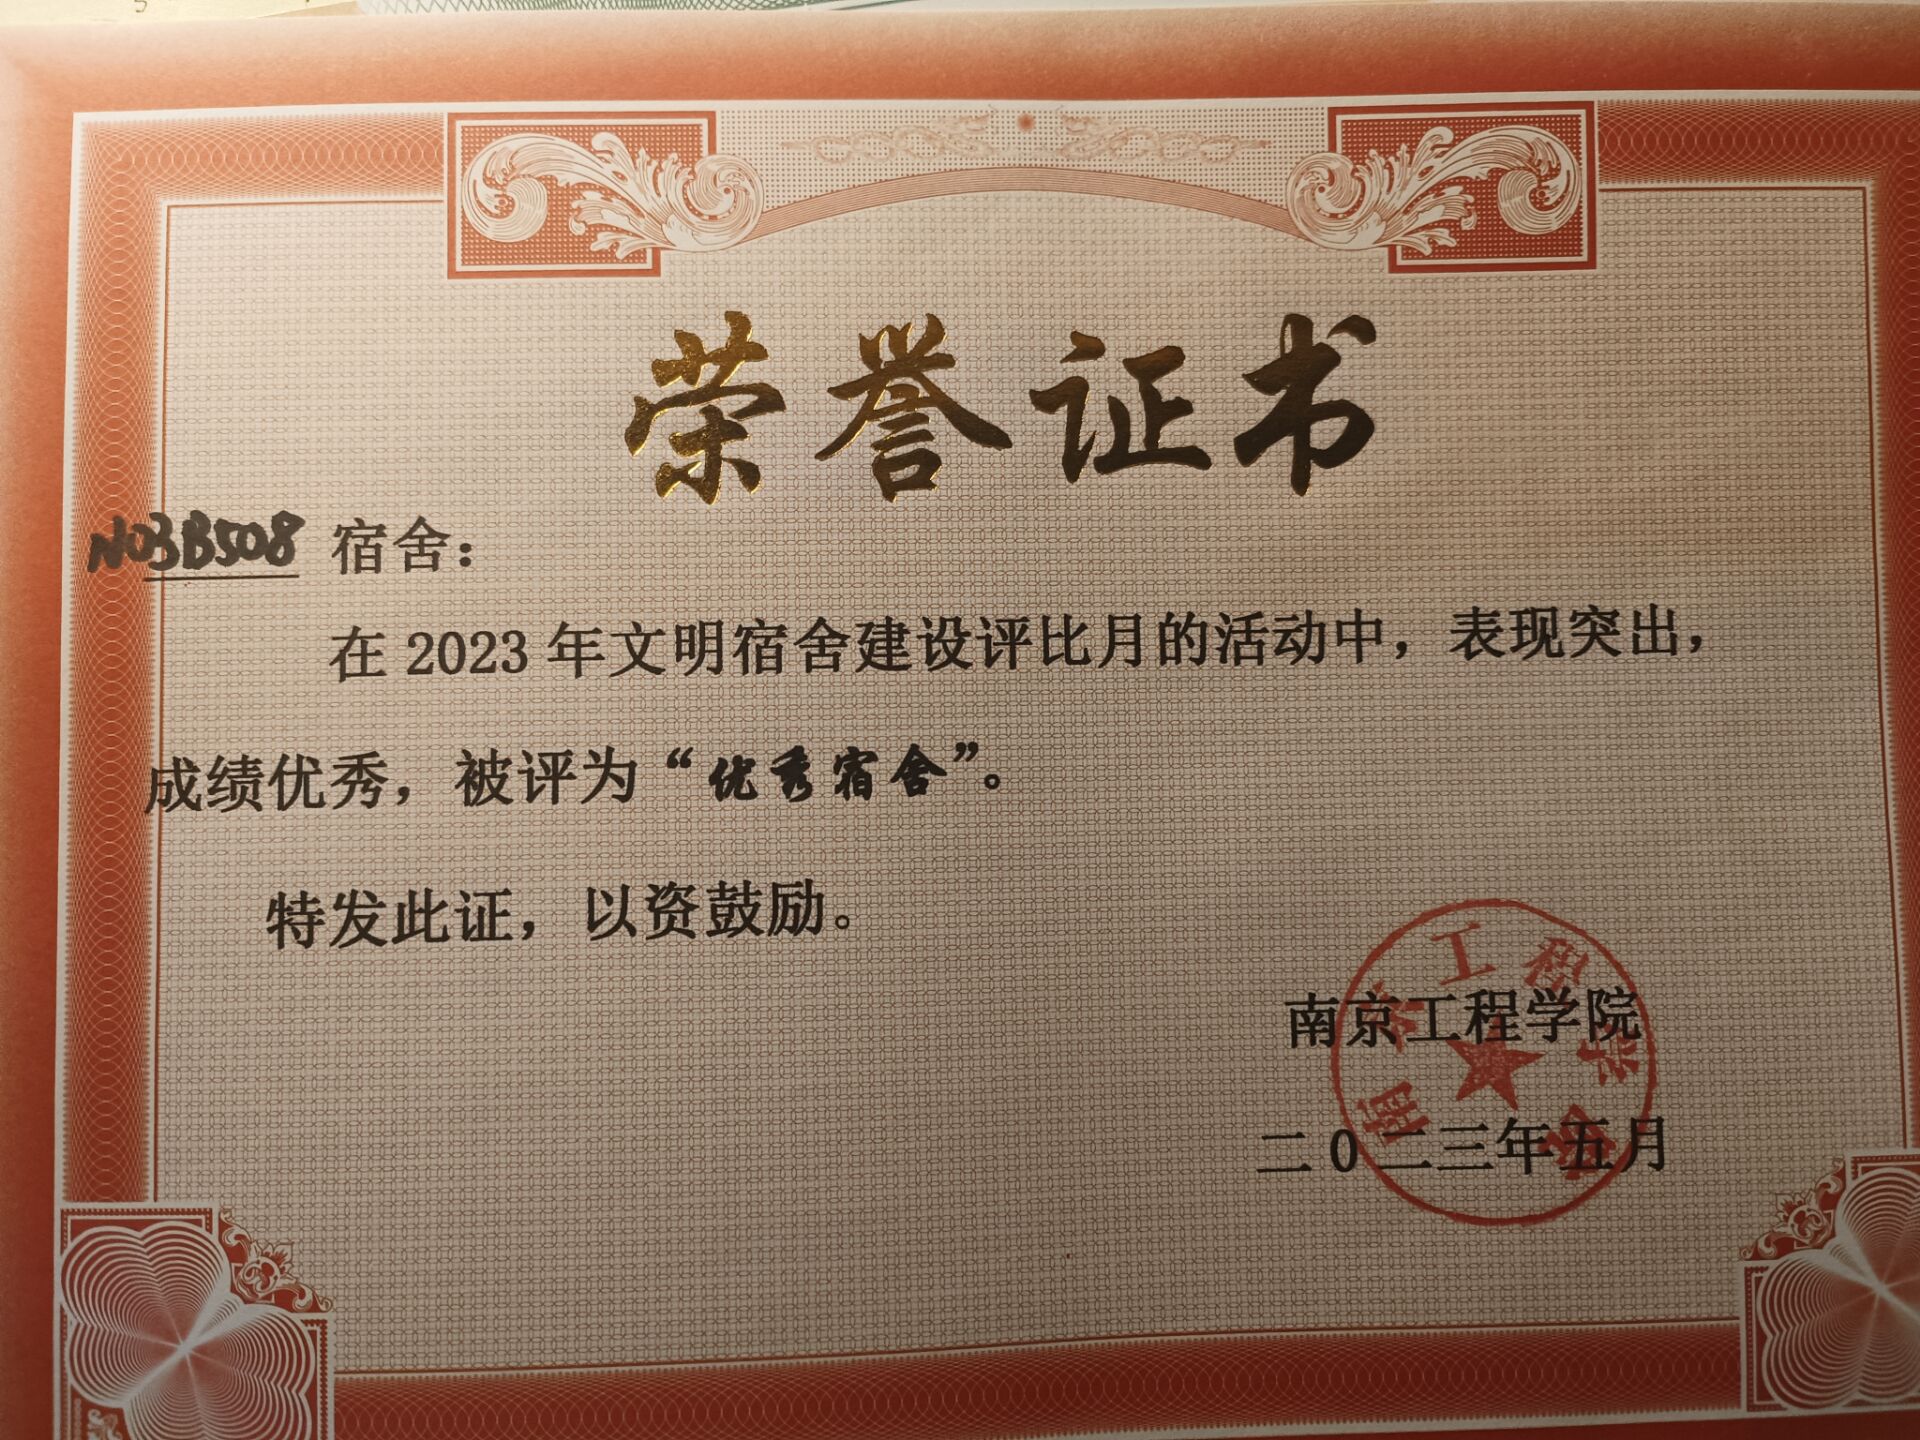 荣誉证书
N03B508 宿舍：
在 2023 年文明宿舍建设评比月的活动中，表现突出，
成绩优秀，被评为“优秀宿舍”。
特发此证，以资鼓励。
南京工程学院
二0二三年五月
南京工程学院
5